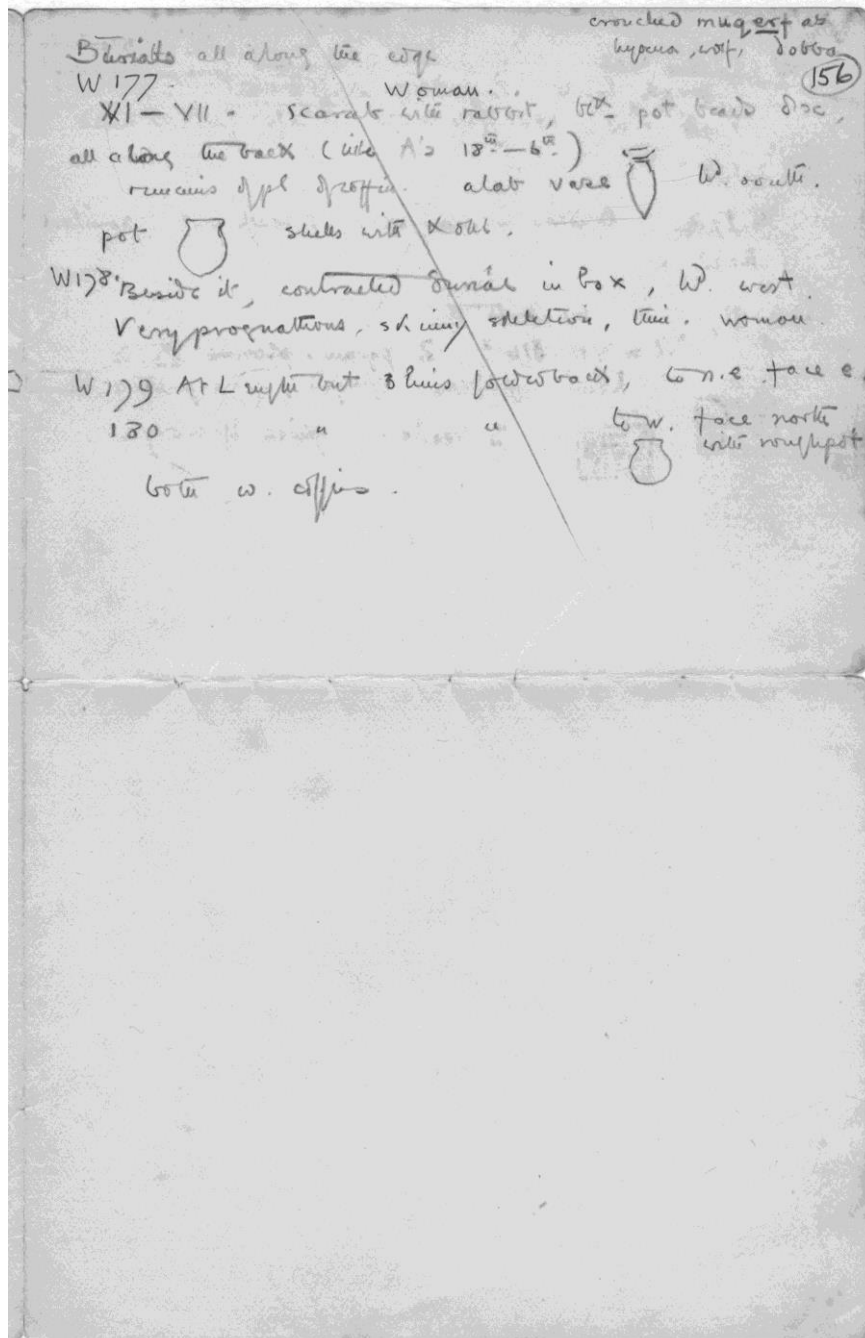 crouched muqerfat
hyena, wolf, dobba
156
Burials all along the edge
W 177. Woman.
XI – VII. scarab with rabbit, pot beads disc,
all along the back (like A's 18th – 6th)
remains of pl of coffin. alab vase W. south.
pot shells with Kohl.
W178. Beside it, contracted burial in box, W. west
Very prognathous, skinny skeleton, thin. woman.
W 179 At Length but limbs back, to n.e. face e.
180 " " to w. face north
with rough pot
both w. coffins.